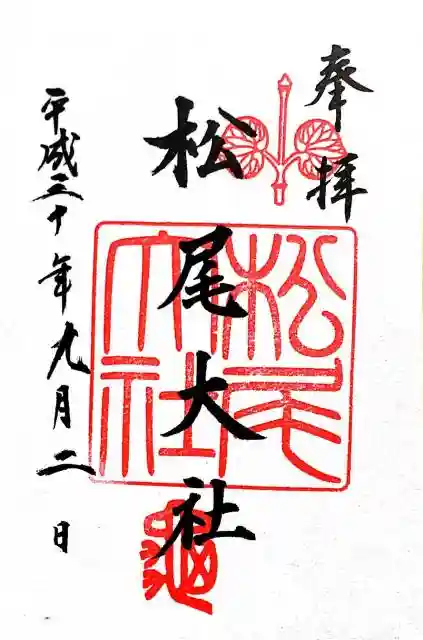 奉拝
松尾大社
松尾大社
平成三十年九月二日